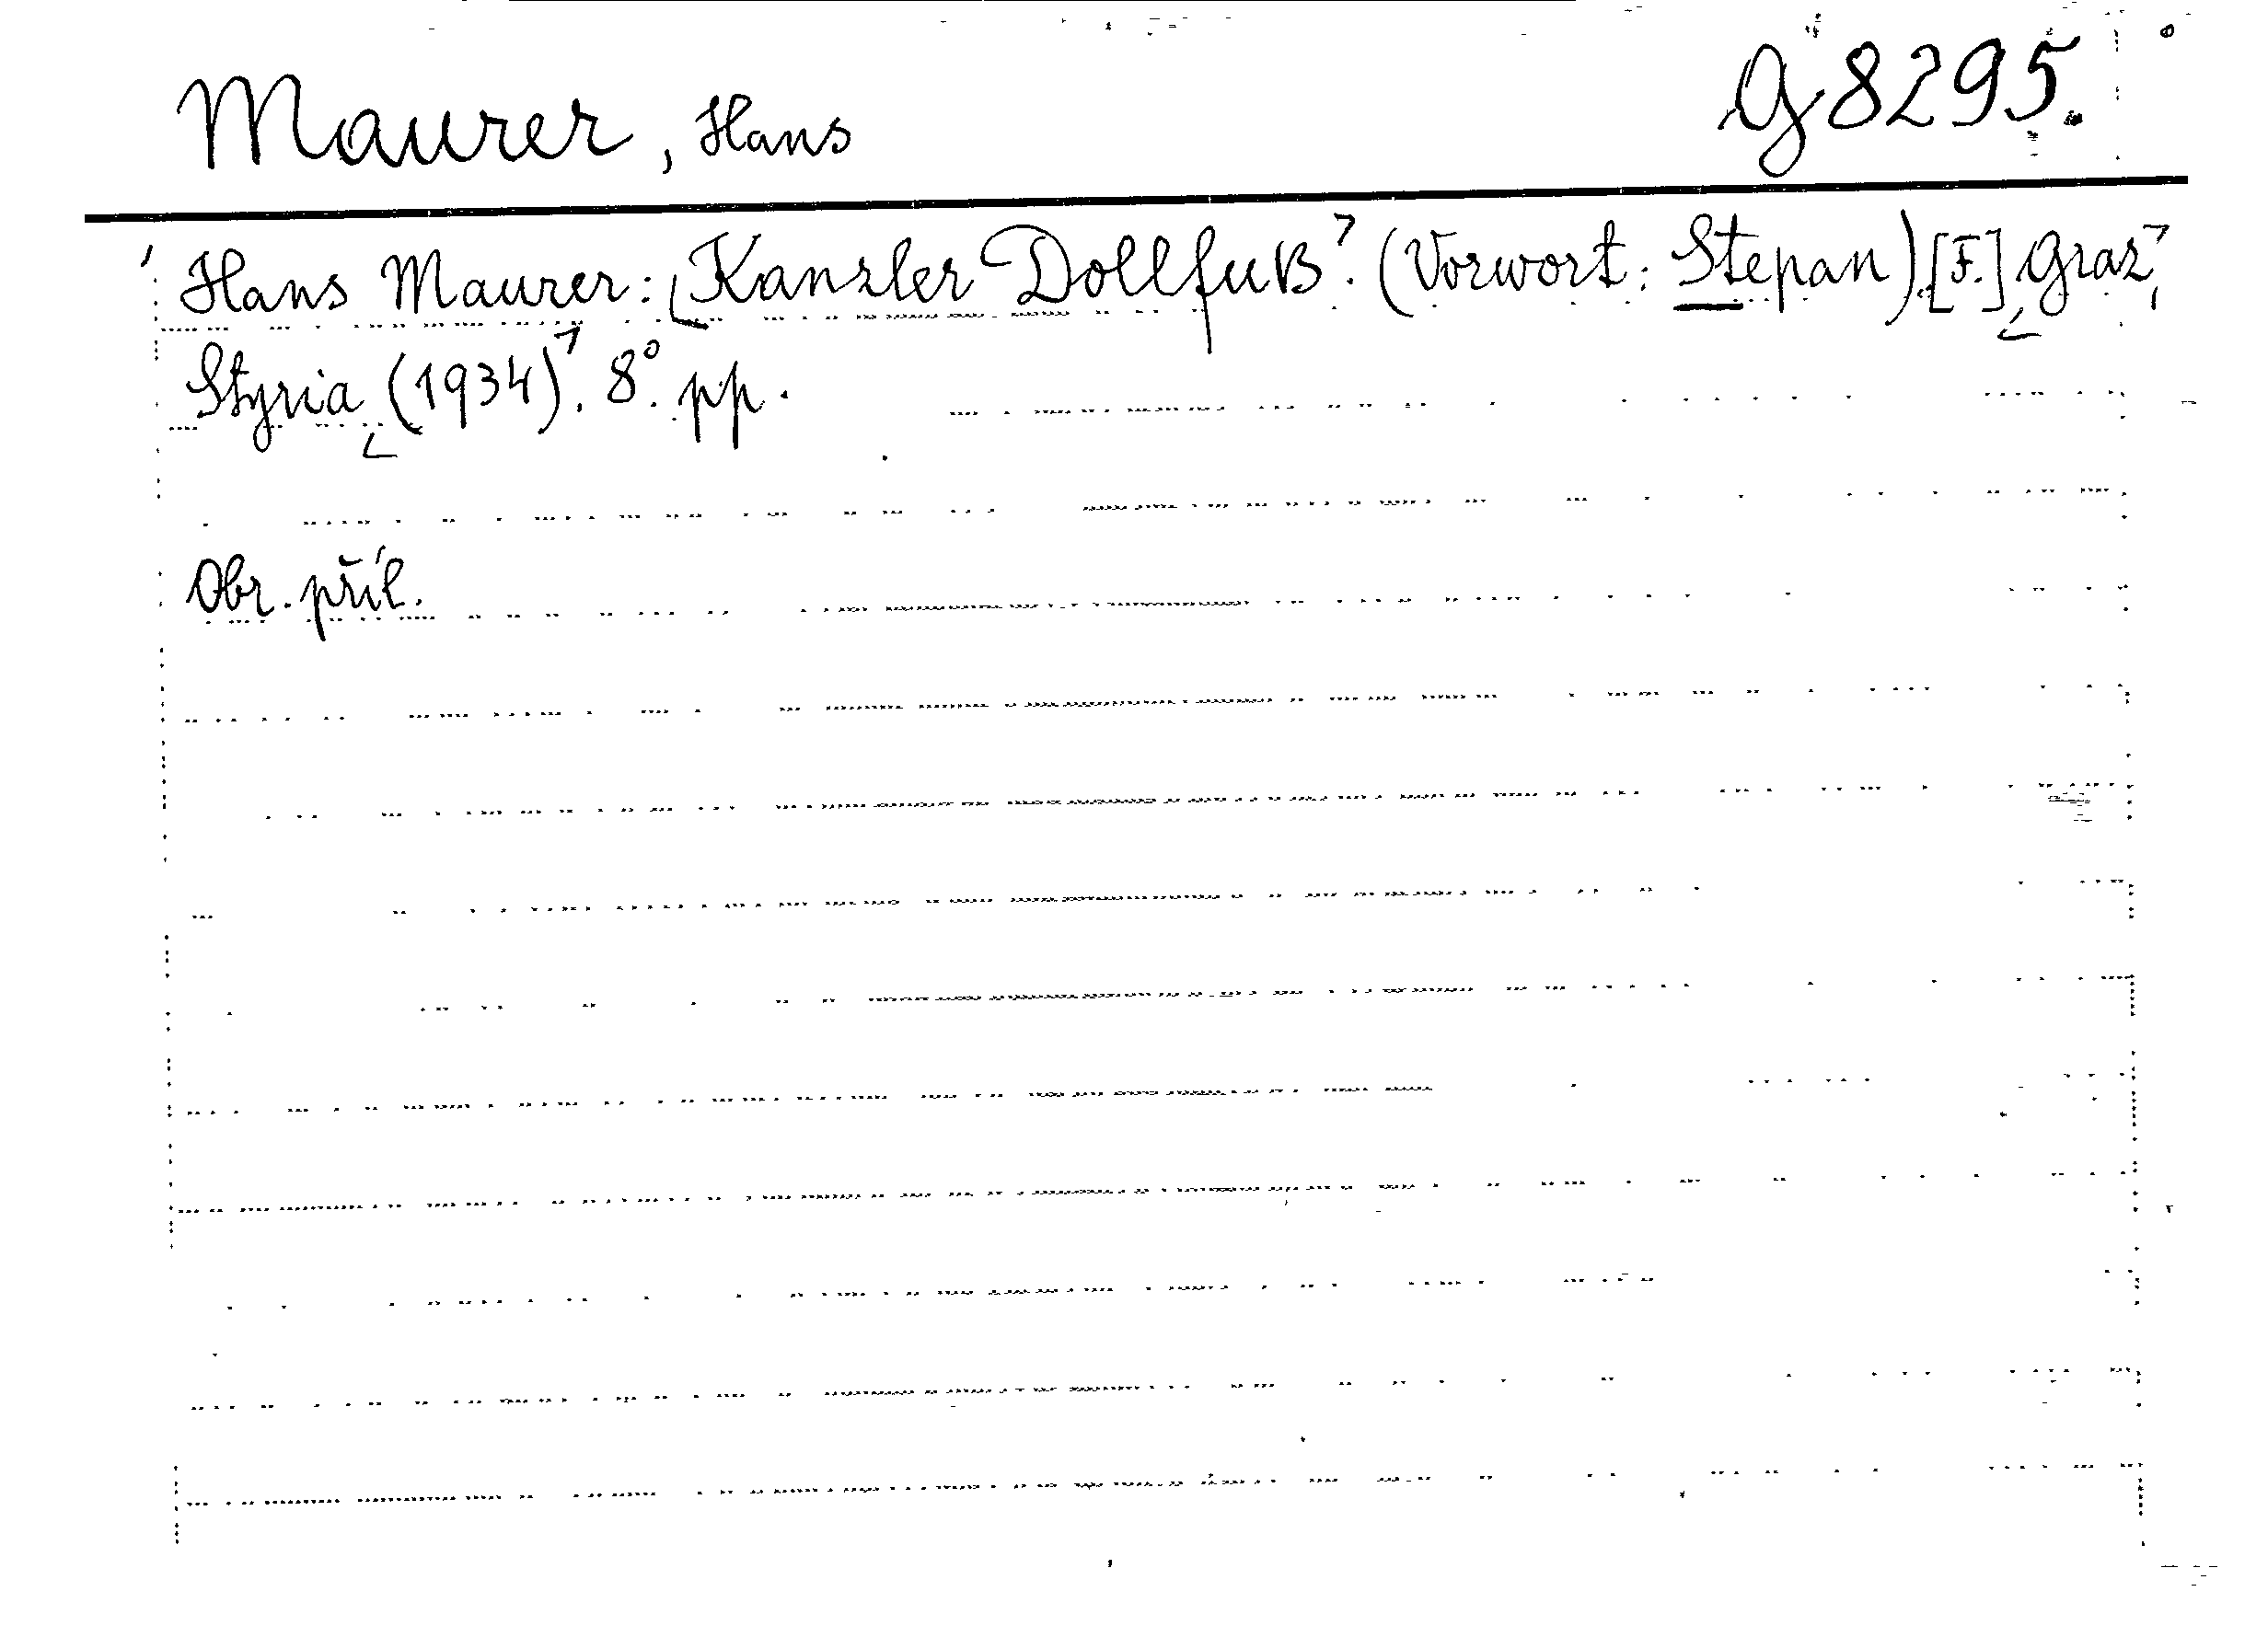 Maurer, Hans
g 8295.
Hans Maurer: Kanzler Dollfuß. (Vorwort: Stepan) [F.] Graz,
Styria (1934). 8°. pp.
Obr. příl.